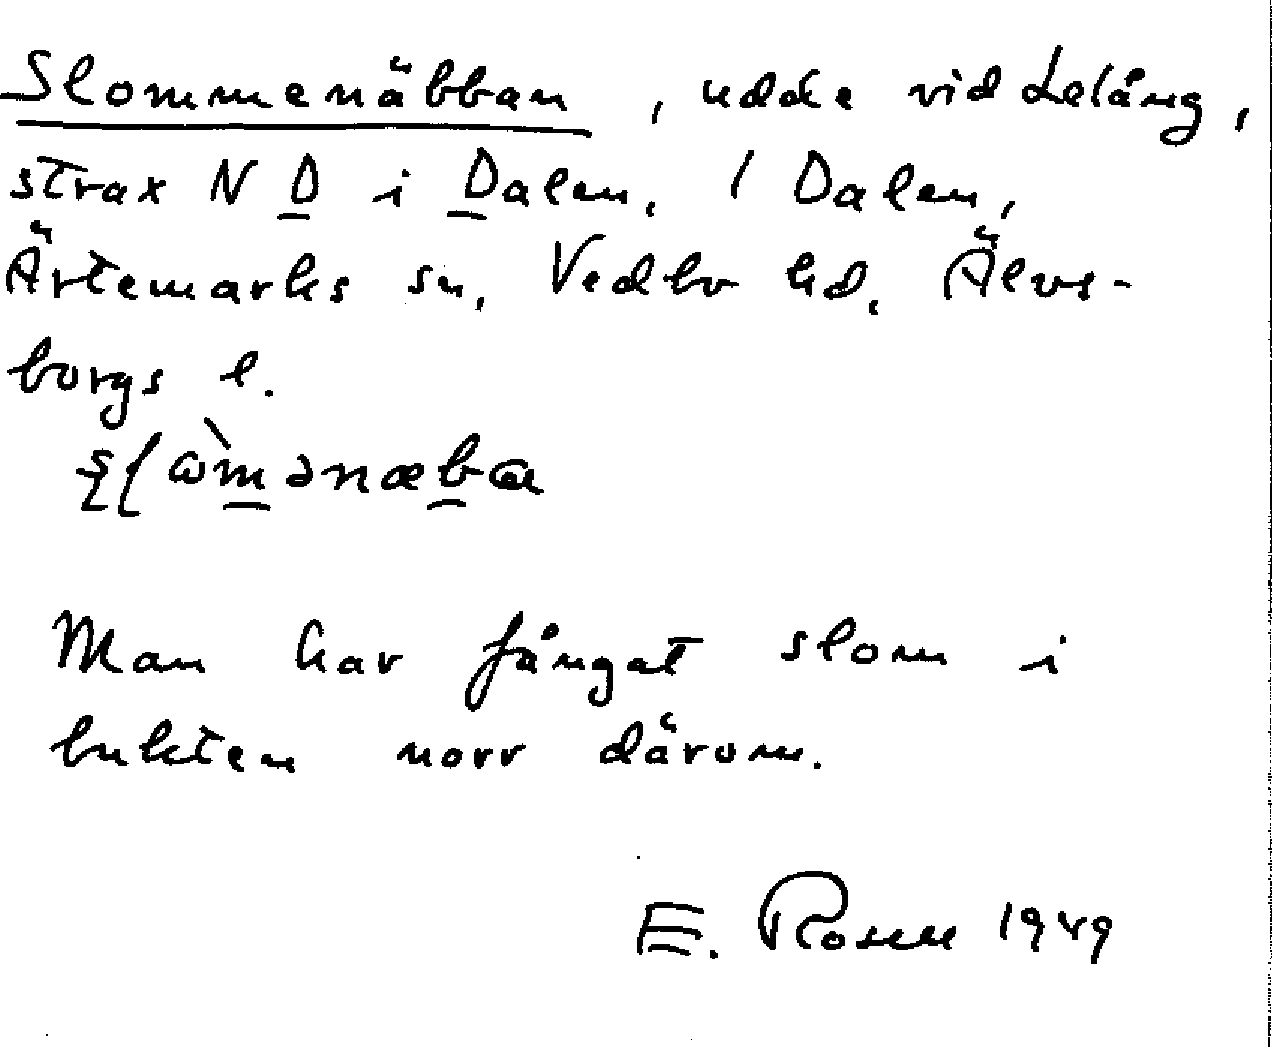 Slommenäbban, udde vid Lelång,
strax N D i Dalen, 1 Dalen,
Ärtemarks sn, Vedbo hd, Älvs-
borgs l.
Man har fångat slom i
bukten norr därom.
E. Rosen 1949